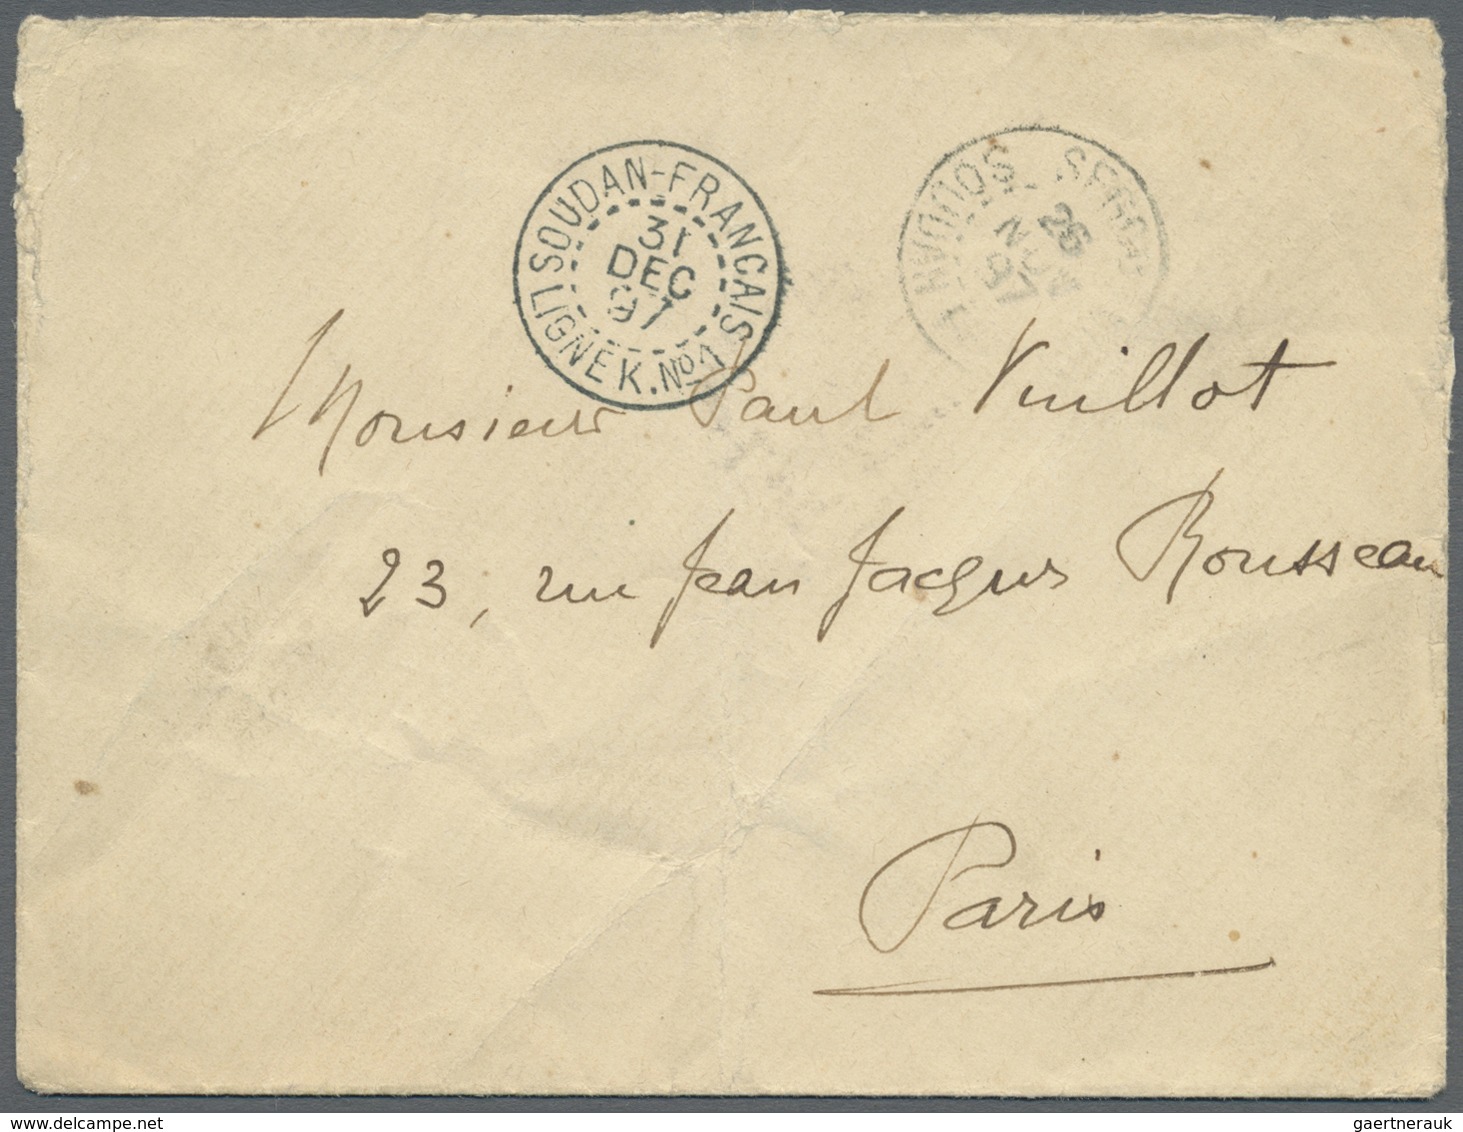 SOUDAN-FRANCAIS
31
DEC
97
LIGNE K. No 1
SOUDAN
26
NOV
97
Monsieur Paul Vuillot
23, rue Jean Jacques Rousseau
Paris
gaertnerauk